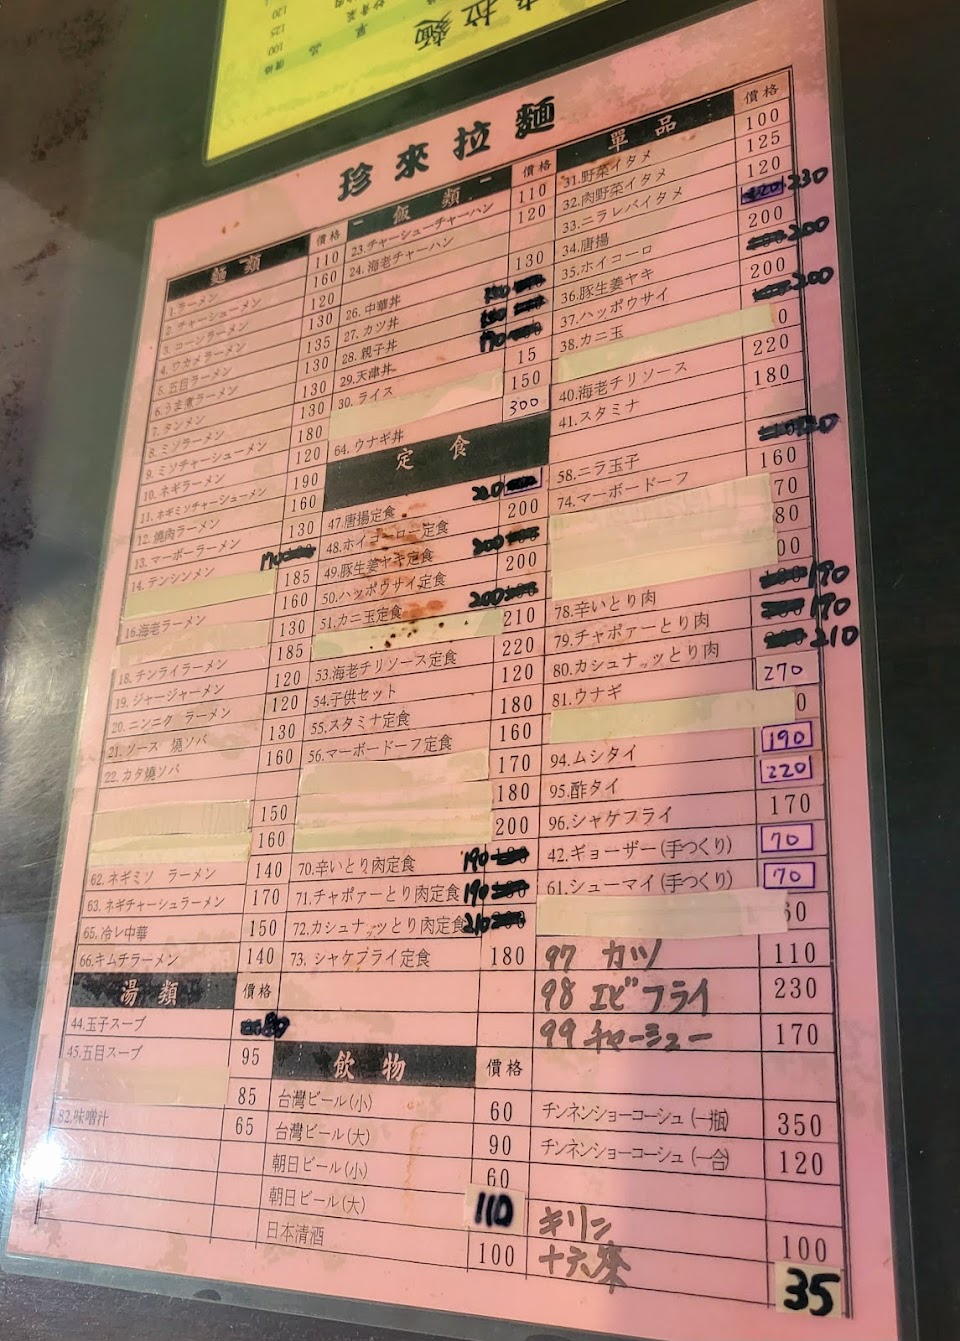 珍來拉麵
麵類 價格
1.ラーメン 110
2.チャーシューメン 160
3.コーンラーメン 120
4.ワカメラーメン 130
5.五目ラーメン 135
6.うま煮ラーメン 130
7.タンメン 130
8.ミソラーメン 130
9.ミソチャーシューメン 180
10.ネギラーメン 120
11.ネギミソチャーシューメン 190
12.燒肉ラーメン 160
13.マーボーラーメン 130
14.テンシンメン 170
185
16.海老ラーメン 160
130
18.チンライラーメン 185
19.ジャージャーメン 120
20.ニンニク ラーメン 120
21.ソース 燒ソバ 130
22.カタ燒ソバ 160
150
160
62.ネギミソ ラーメン 140
63.ネギチャーシュラーメン 170
65.冷レ中華 150
66.キムチラーメン 140
湯類 價格
44.玉子スープ 80
45.五目スープ 95
85
82.味噌汁 65
飯類 價格
23.チャーシューチャーハン 110
24.海老チャーハン 120
26.中華丼 130
27.カツ丼
28.親子丼
29.天津丼 170
30.ライス 15
150
64.ウナギ丼 300
定食
47.唐揚定食 220
48.ホイコーロー定食 200
49.豚生姜ヤキ定食 200
50.ハッポウサイ定食 200
51.カニ玉定食 200
210
53.海老チリソース定食 220
54.子供セット 120
55.スタミナ定食 180
56.マーボードーフ定食 160
170
180
200
70.辛いとり肉定食 190
71.チャポァーとり肉定食 190
72.カシュナッツとり肉定食 210
73.シャケフライ定食 180
飲物 價格
台灣ビール(小) 60
台灣ビール(大) 90
朝日ビール(小) 60
朝日ビール(大) 110
日本清酒 100
單品 價格
31.野菜イタメ 100
32.肉野菜イタメ 125
33.ニラレバイタメ 120
34.唐揚 230
35.ホイコーロ 200
36.豚生姜ヤキ 200
37.ハッポウサイ 200
38.カニ玉 200
0
40.海老チリソース 220
41.スタミナ 180
58.ニラ玉子 120
74.マーボードーフ 160
70
80
00
78.辛いとり肉 190
79.チャポァーとり肉 190
80.カシュナッツとり肉 210
81.ウナギ 270
0
94.ムシタイ 190
95.酢タイ 220
96.シャケフライ 170
42.ギョーザー(手つくり) 70
61.シューマイ(手つくり) 70
60
97 カツ 110
98 エビフライ 230
99 チャーシュー 170
チンネンショーコーシュ(一瓶) 350
チンネンショーコーシュ(一合) 120
キリン 100
十六茶 35